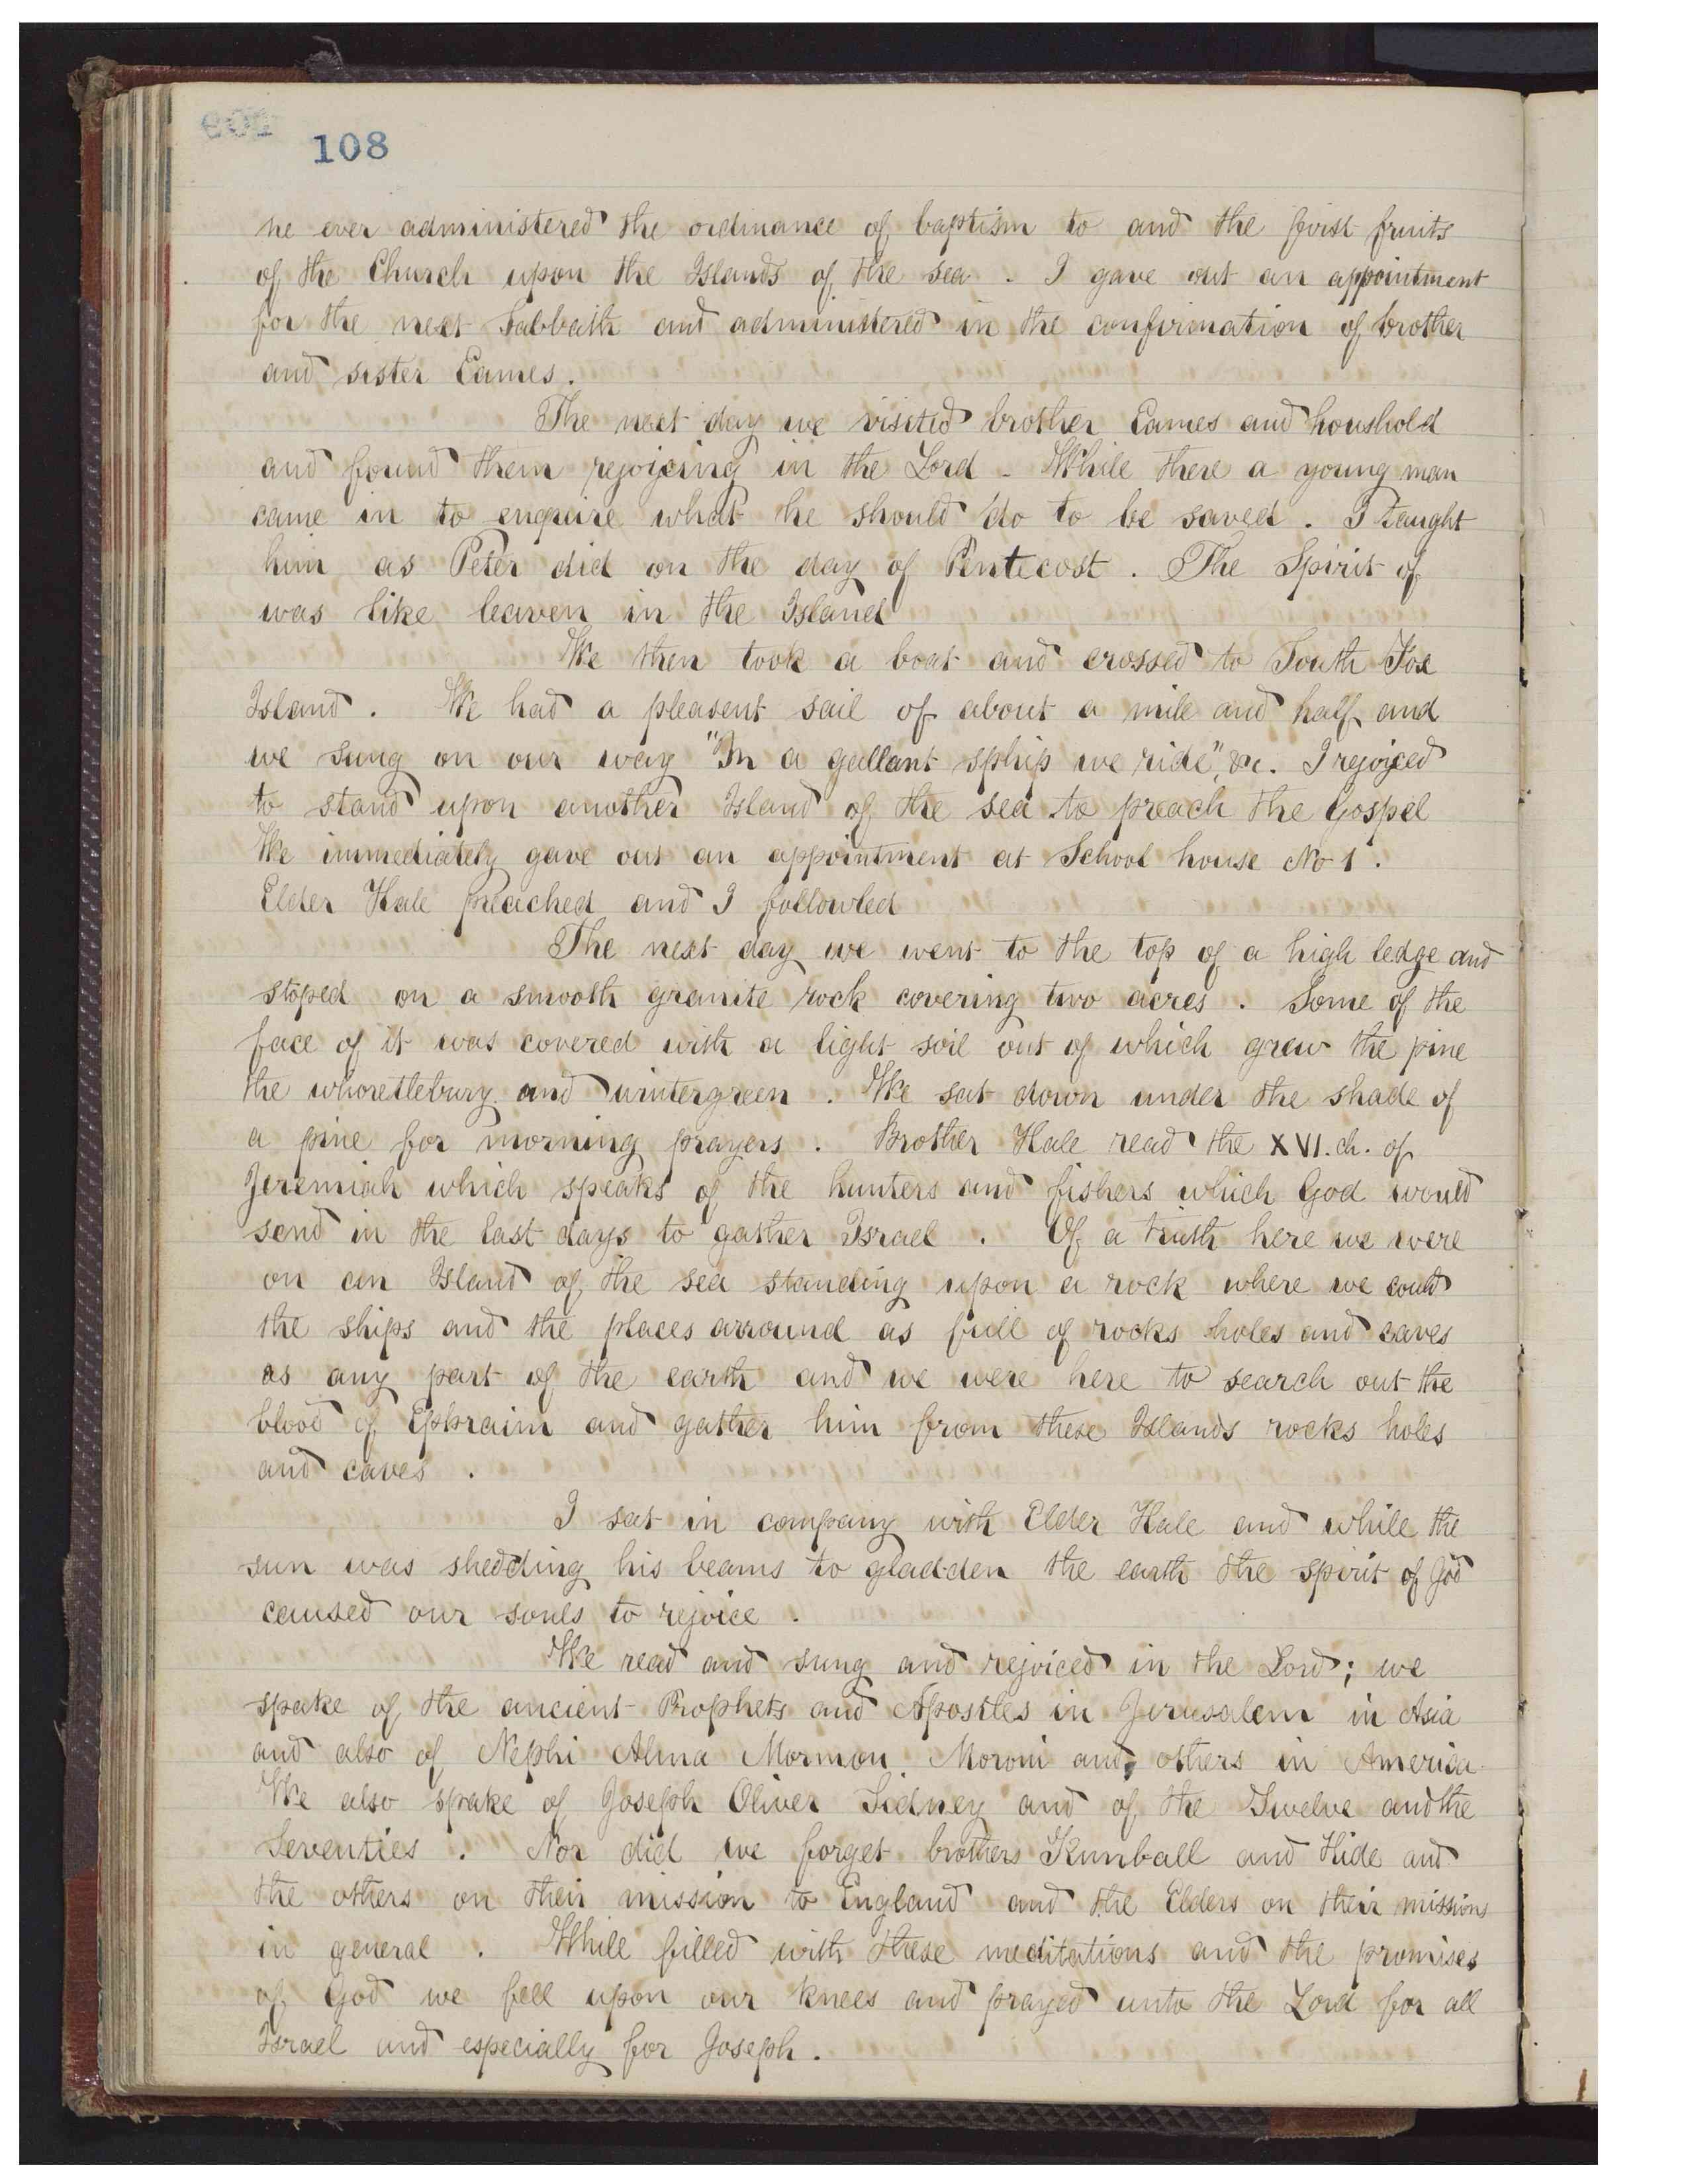 108
he ever administered the ordinance of baptism to and the first fruits
of the Church upon the Islands of the sea . I gave out an appointment
for the next Sabbath and administered in the confirmation of brother
and sister Eames .
The next day we visited brother Eames and houshold
and found them rejoicing in the Lord - While there a young man
came in to enquire what he should do to be saved . I taught
him as Peter did on the day of Pentecost . The Spirit of
was like leaven in the Island
We then took a boat and crossed to South Fox
Island . We had a pleasent sail of about a mile and half and
we sung on our way "In a gallant sphip we ride", &c. I rejoiced
to stand upon another Island of the sea to preach the Gospel
We immediately gave out an appointment at School house No 1 .
Elder Hale preached and I followled
The next day we went to the top of a high ledge and
stoped on a smooth granite rock covering two acres . Some of the
face of it was covered with a light soil out of which grew the pine
the whoretlebury and wintergreen . We sat down under the shade of
a pine for morning prayers . Brother Hale read the XVI. ch. of
Jeremiah which speaks of the hunters and fishers which God would
send in the last days to gather Israel . Of a truth here we were
on an Island of the sea standing upon a rock where we could
the ships and the places arround as full of rocks holes and caves
as any part of the earth and we were here to search out the
blood of Ephraim and gather him from these Islands rocks holes
and caves .
I sat in company with Elder Hale and while the
sun was shedding his beams to gladden the earth the spirit of God
caused our souls to rejoice .
We read and sung and rejoiced in the Lord ; we
spake of the ancient Prophets and Apostles in Jerusalem in Asia
and also of Nephi Alma Mormon Moroni and, others in America
We also spake of Joseph Oliver Sidney and of the Twelve and the
Seventies . Nor did we forget brothers Kimball and Hide and
the others on their mission to England and the Elders on their missions
in general . While filled with these meditations and the promises
of God we fell upon our knees and prayed unto the Lord for all
Israel and especially for Joseph .